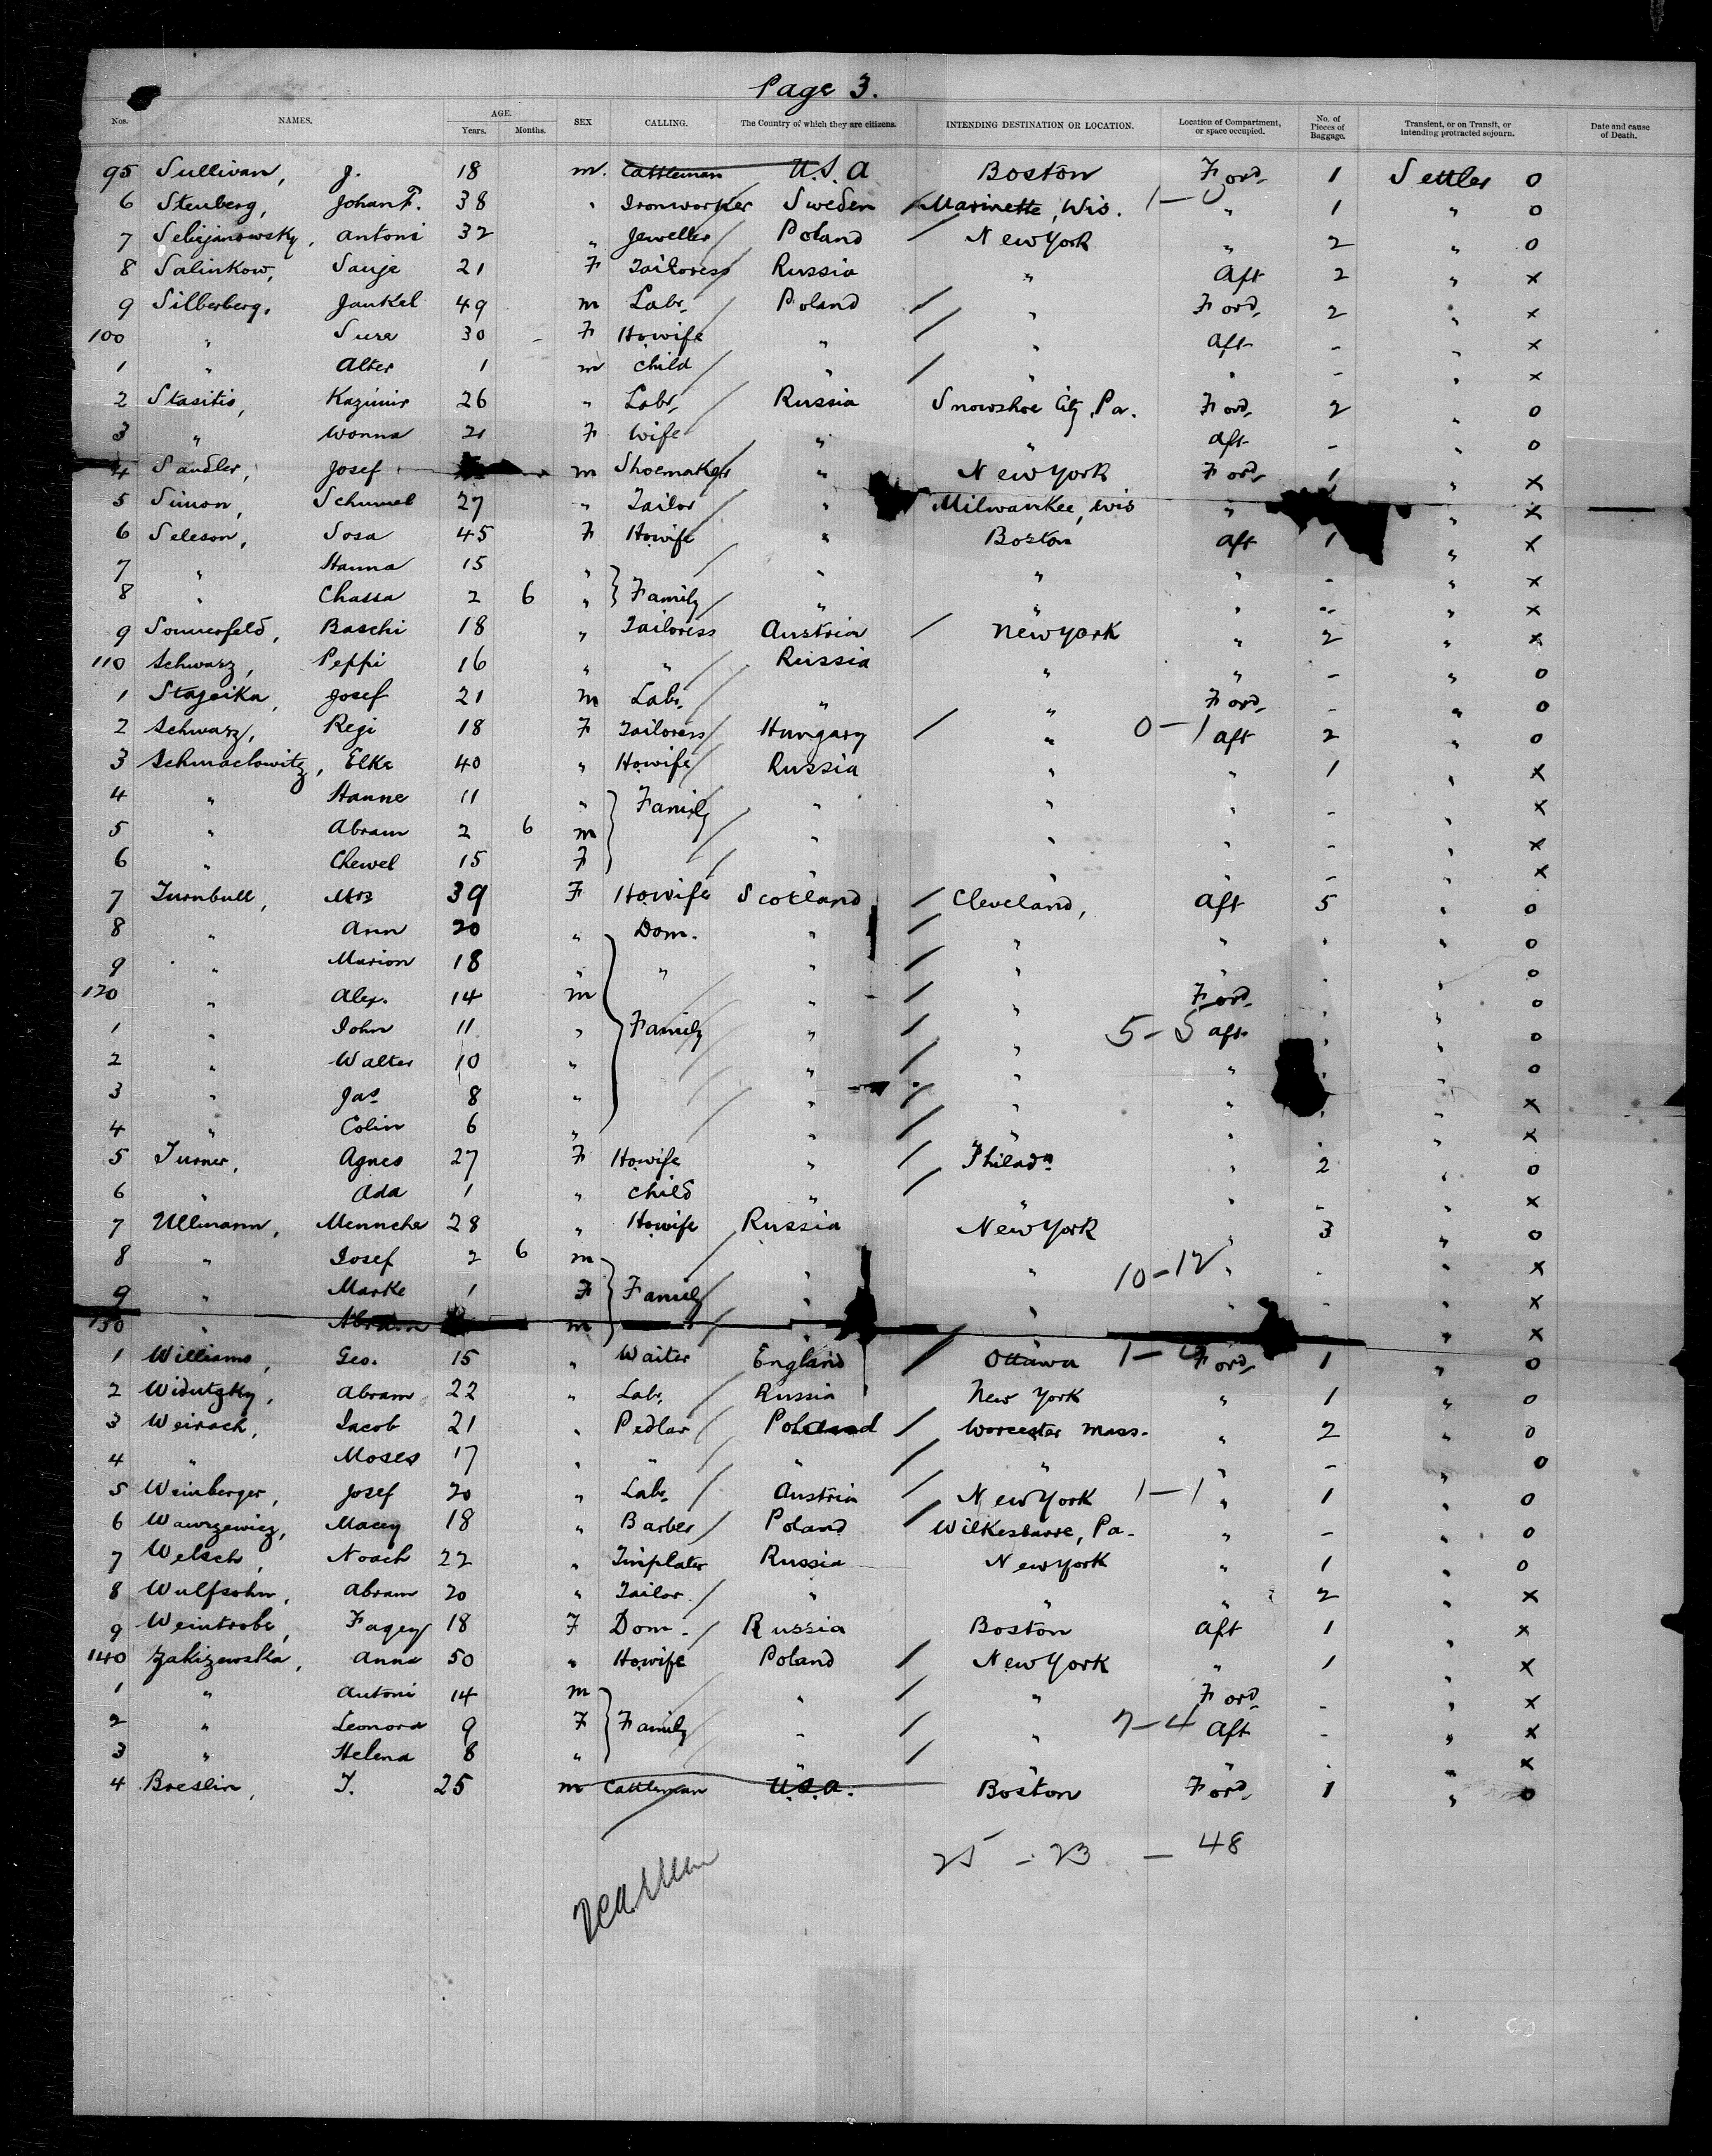 Page 3.
Nos. NAMES. AGE. Years. Months. SEX CALLING. The Country of which they are citizens. INTENDING DESTINATION OR LOCATION. Location of Compartment, or space occupied. No. of Pieces of Baggage. Transient, or on Transit, or intending protracted sojourn. Date and cause of Death.
95 Sullivan, J. 18 m. Cattleman U.S.A Boston Ford. 1 Settler 0
6 Stenberg, Johan F. 38 " Ironworker Sweden Marinette, Wis. 1-0 " 1 " 0
7 Selirjanowsky, Antoni 32 " Jeweller Poland New York " 2 " 0
8 Salinkow, Sauje 21 F Tailoress Russia " Aft 2 " x
9 Silberberg, Jankel 49 m Labr. Poland " Ford. 2 " x
100 " Sura 30 - F Howife " " Aft - " x
1 " Alter 1 m Child " " " - " x
2 Stasitis, Kazimir 26 " Labr. Russia Snowshoe City, Pa. Ford. 2 " 0
3 " Wonna 21 F Wife " " Aft - " 0
4 Sandler, Josef m Shoemaker " New York Ford. 1 " x
5 Simon, Schmuel 27 " Tailor " Milwaukee, Wis " " x
6 Seleson, Sosa 45 F Howife " Boston Aft 1 " x
7 " Hanna 15 " " " " - " x
8 " Chassa 2 6 " Family " " " - " x
9 Sommerfeld, Baschi 18 " Tailoress Austria New York " 2 " x
110 Schwarz, Peppi 16 " " Russia " " - " 0
1 Stageika, Josef 21 m Labr. " " Ford. - " 0
2 Schwarz, Regi 18 F Tailoress Hungary " 0-1 Aft 2 " 0
3 Schmaclowitz, Elke 40 " Howife Russia " " 1 " x
4 " Hanne 11 " Family " " " - " x
5 " Abram 2 6 m " " " - " x
6 " Chewel 15 F " " " - " x
7 Turnbull, Mrs 39 F Howife Scotland Cleveland, Aft 5 " 0
8 " Ann 20 " Dom. " " " " " 0
9 " Marion 18 " " " " " " " 0
120 " Alex. 14 m " " Ford. " " 0
1 " John 11 " Family " " 5-5 Aft " " 0
2 " Walter 10 " " " " " 0
3 " Jas. 8 " " " " " " x
4 " Colin 6 " " " " " " x
5 Turner, Agnes 27 F Howife " Philada " 2 " 0
6 " Ada 1 " Child " " " - " x
7 Ullmann, Menucha 28 " Howife Russia New York " 3 " 0
8 " Josef 2 6 m " " 10-12 " - " x
9 " Marke 1 F Family " " " - " x
130 " Abram m " " - " x
1 Williams, Geo. 15 " Waiter England Ottawa Ford. 1 " 0
2 Widutzky, Abram 22 " Labr. Russia New York " 1 " 0
3 Weirach, Jacob 21 " Pedlar Poland Worcester Mass. " 2 " 0
4 " Moses 17 " " " " " - " 0
5 Weinberger, Josef 20 " Labr. Austria New York 1-1 " 1 " 0
6 Wawrzewicz, Macey 18 " Barber Poland Wilkesbarre, Pa. " - " 0
7 Welsch, Noach 22 " Tinplater Russia New York " 1 " 0
8 Wulfsohn, Abram 20 " Tailor " " " 2 " x
9 Weintrobe, Fagey 18 F Dom. Russia Boston Aft 1 " x
140 Zakizewska, Anna 50 " Howife Poland New York " 1 " x
1 " Antoni 14 m " " Ford - " x
2 " Leonora 9 F Family " " 7-4 Aft - " x
3 " Helena 8 " " " " " " x
4 Breslin, T. 25 m Cattleman U.S.A. Boston Ford. 1 " 0
25 - 23 - 48